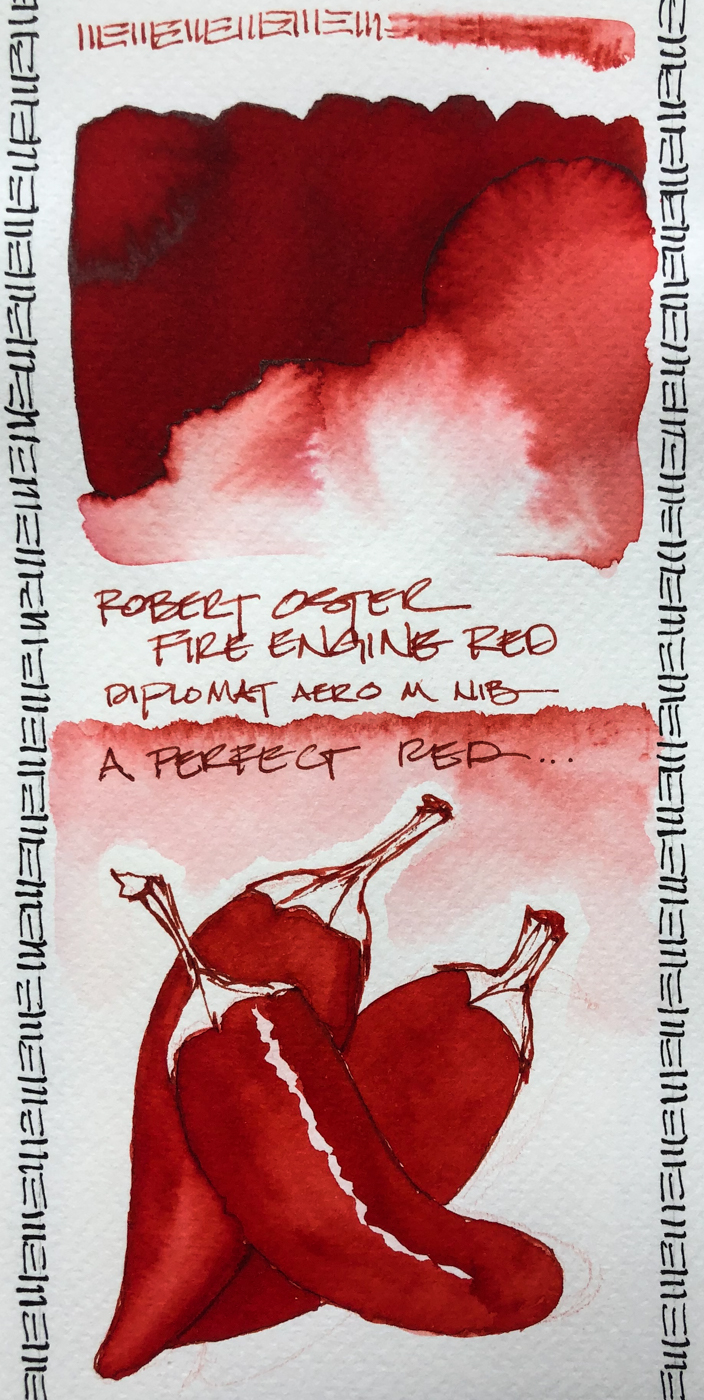 ROBERT OSTER
FIRE ENGINE RED
DIPLOMAT AERO M NIB
A PERFECT RED...